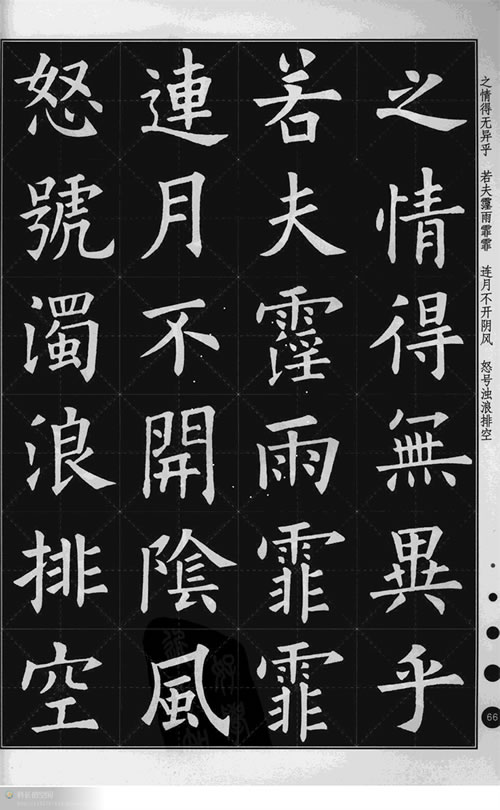 之情得無異乎
若夫霪雨霏霏
連月不開陰風
怒號濁浪排空
之情得无异乎 若夫霪雨霏霏 连月不开阴风 怒号浊浪排空
66